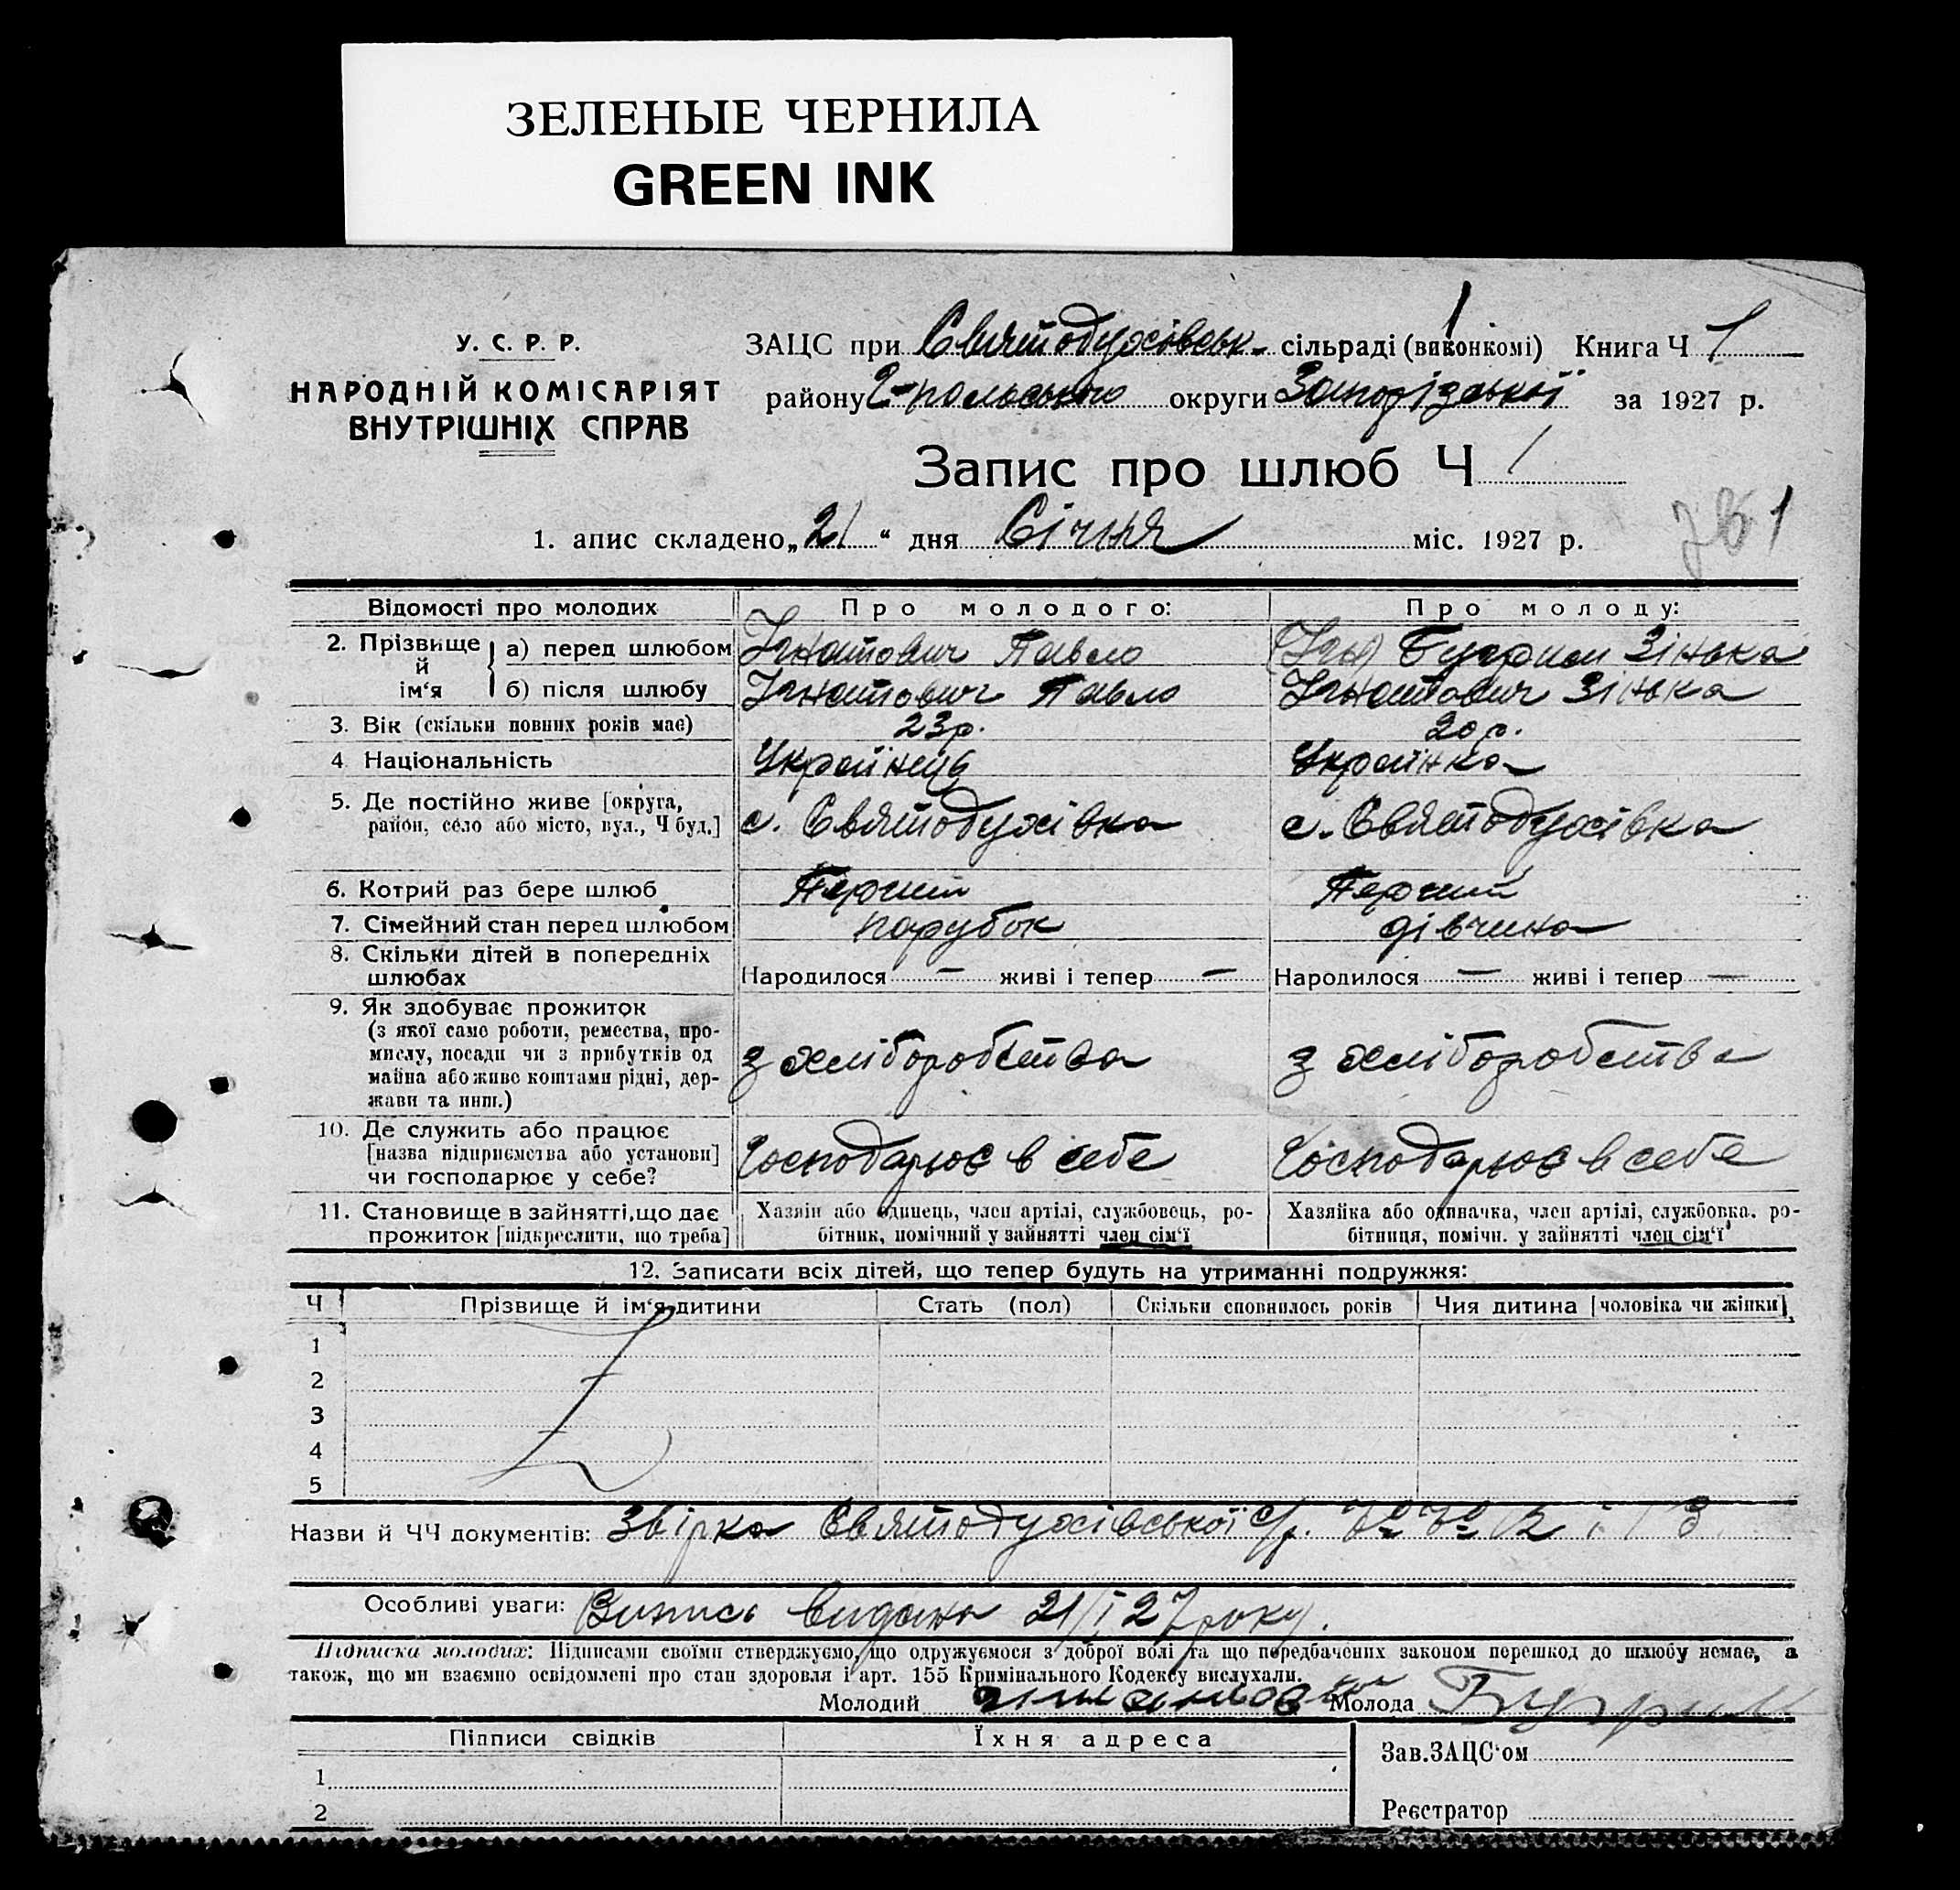 ЗЕЛЕНЫЕ ЧЕРНИЛА
GREEN INK
У. С. Р. Р.
НАРОДНІЙ КОМІСАРІЯТ
ВНУТРІШНІХ СПРАВ
1
ЗАЦС при Святодухівськ. сільраді (виконкомі) Книга Ч 1
району Г-польського округи Запорізської за 1927 р.
Запис про шлюб Ч 1
1. апис складено „21“ дня Січня міс. 1927 р.
Відомості про молодих Про молодого: Про молоду:
2. Прізвище й ім‘я а) перед шлюбом Ігнатович Павло (Ігн) Бугрим Зінька
б) після шлюбу Ігнатович Павло Ігнатович Зінька
3. Вік (скільки повних років має) 23р. 20 р.
4. Національність Українець Українка
5. Де постійно живе [округа, район, село або місто, вул., Ч буд.] с. Святодухівка с. Святодухівка
6. Котрий раз бере шлюб Перший Перший
7. Сімейний стан перед шлюбом парубок дівчина
8. Скільки дітей в попередніх шлюбах Народилося — живі і тепер — Народилося — живі і тепер —
9. Як здобуває прожиток
(з якої само роботи, ремества, про-
мислу, посади чи з прибутків од
майна або живе коштами рідні, дер-
жави та инш.)
з хліборобства з хліборобства
10. Де служить або працює
[назва підприємства або установи]
чи господарює у себе?
Господарює в себе Господарює в себе
11. Становище в зайнятті, що дає прожиток [підкреслити, що треба]
Хазяїн або одинець, член артілі, службовець, ро-
бітник, помічний у зайнятті член сім‘ї
Хазяйка або одиначка, член артілі, службовка, ро-
бітниця, помічн. у зайнятті член сім‘ї
12. Записати всіх дітей, що тепер будуть на утриманні подружжя:
Ч Прізвище й ім‘я дитини Стать (пол) Скільки сповнилось років Чия дитина [чоловіка чи жінки]
1
2
3
4
5
Назви й ЧЧ документів: Звірка Святодухівської с/р. №№ 12 і 13
Особливі уваги: Випись видана 21/I 27 року.
Підписка молодих: Підписами своїми стверджуємо, що одружуємося з доброї волі та що передбачених законом перешкод до шлюбу немає, а
також, що ми взаємно освідомлені про стан здоровля і арт. 155 Кримінального Кодексу вислухали.
Молодий Молода Бугрим
Підписи свідків Їхня адреса
Зав. ЗАЦС‘ом
1
2
Реєстратор